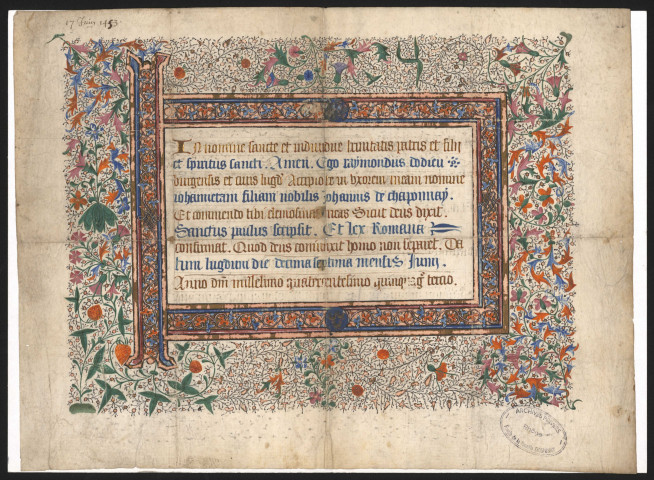 17 Juin 1453.
In nomine sancte et individue trinitatis patris et filii
et spiritus sancti. Amen. Ego raymondus
et civis lugd Accipio te in uxorem meam nomine
iohannetam filiam nobilis iohannis de chaponnay.
Et commendo tibi elemosinas meas Sicut deus dixit.
Sanctus paulus scripsit. Et lex Romana
confirmat. Quod deus coniunxit homo non separet. Da
tum lugduni die decima septima mensis Junii.
Anno dni millesimo quatercentesimo tercio.
ARCHIVES
RHÔNE